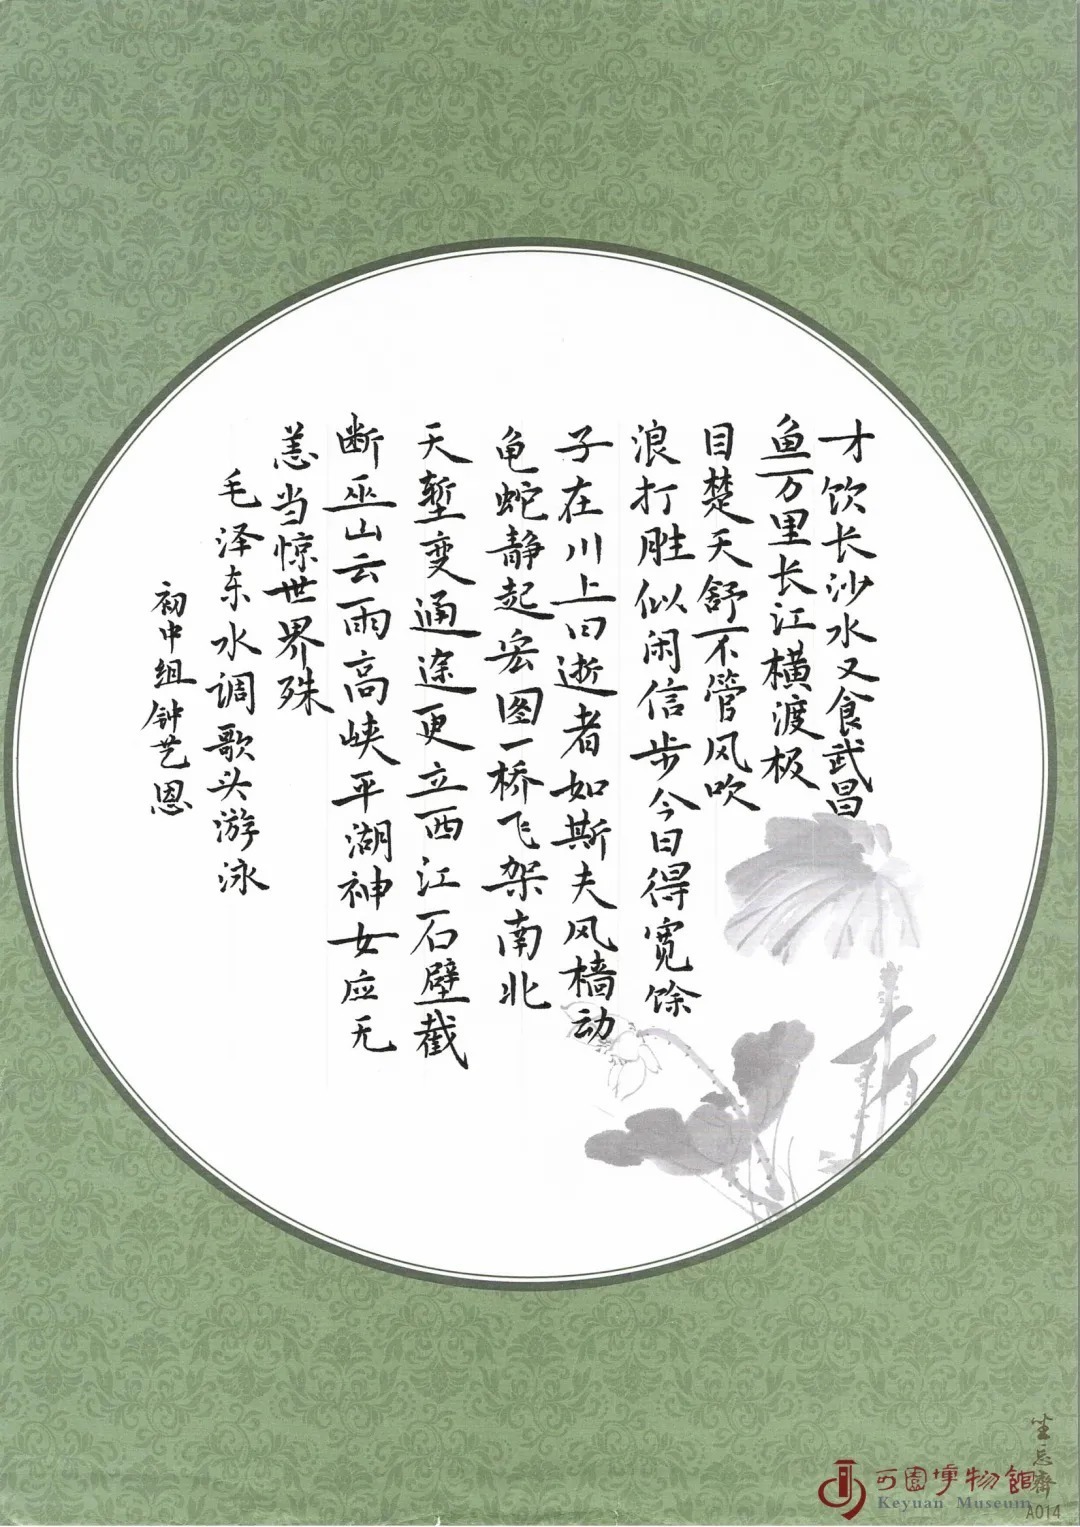 才饮长沙水又食武昌
鱼万里长江横渡极
目楚天舒不管风吹
浪打胜似闲信步今日得宽馀
子在川上曰逝者如斯夫风樯动
龟蛇静起宏图一桥飞架南北
天堑变通途更立西江石壁截
断巫山云雨高峡平湖神女应无
恙当惊世界殊
毛泽东水调歌头游泳
初中组钟艺恩
坐忘齋
A014
可園博物館
Keyuan Museum